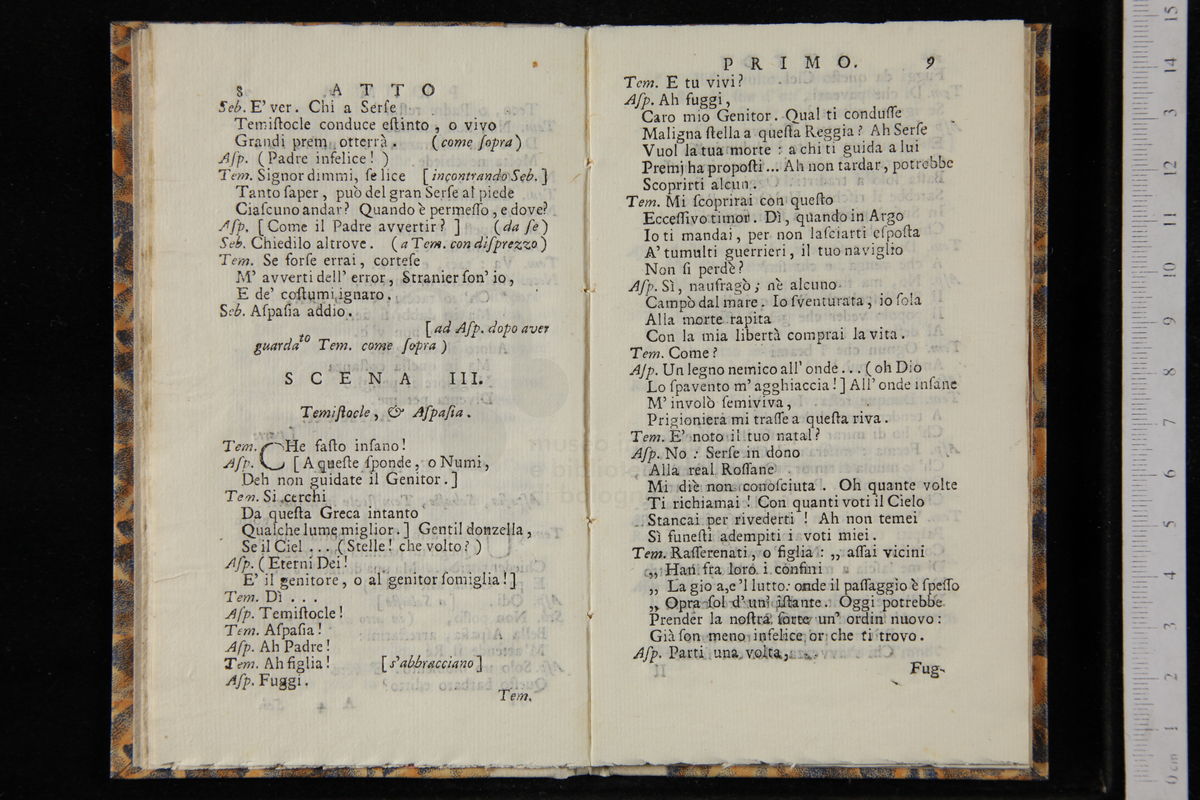 8 ATTO
Seb. E' ver. Chi a Serſe
Temiſtocle conduce eſtinto, o vivo
Grandi prem otterrà. (come ſopra)
Aſp. (Padre infelice!)
Tem. Signor dimmi, ſe lice [incontrando Seb.]
Tanto ſaper, può del gran Serſe al piede
Ciaſcuno andar? Quando è permeſſo, e dove?
Aſp. [Come il Padre avvertir?] (da ſe)
Seb. Chiedilo altrove. (a Tem. con diſprezzo)
Tem. Se forſe errai, corteſe
M' avverti dell' error, Stranier ſon' io,
E de' coſtumi ignaro.
Seb. Aſpaſia addio.
[ad Aſp. dopo aver
guardato Tem. come ſopra)
SCENA III.
Temiſtocle, & Aſpaſia.
Tem. CHe faſto inſano!
Aſp. [A queſte ſponde, o Numi,
Deh non guidate il Genitor.]
Tem. Si cerchi
Da queſta Greca intanto
Qualche lume miglior.] Gentil donzella,
Se il Ciel ... (Stelle! che volto?)
Aſp. (Eterni Dei!
E' il genitore, o al genitor ſomiglia!]
Tem. Dì ...
Aſp. Temiſtocle!
Tem. Aſpaſia!
Aſp. Ah Padre!
Tem. Ah figlia! [s'abbracciano]
Aſp. Fuggi.
Tem.
PRIMO. 9
Tem. E tu vivi?
Aſp. Ah fuggi,
Caro mio Genitor. Qual ti conduſſe
Maligna ſtella a queſta Reggia? Ah Serſe
Vuol la tua morte: a chi ti guida a lui
Premj ha propoſti ... Ah non tardar, potrebbe
Scoprirti alcun.
Tem. Mi ſcoprirai con queſto
Ecceſſivo timor. Dì, quando in Argo
Io ti mandai, per non laſciarti eſpoſta
A' tumulti guerrieri, il tuo naviglio
Non ſi perdè?
Aſp. Sì, naufragò; nè alcuno
Campò dal mare. Io ſventurata, io ſola
Alla morte rapita
Con la mia libertà comprai la vita.
Tem. Come?
Aſp. Un legno nemico all' onde ... (oh Dio
Lo ſpavento m' agghiaccia!] All' onde inſane
M' involò ſemiviva,
Prigioniera mi traſſe a queſta riva.
Tem. E' noto il tuo natal?
Aſp. No: Serſe in dono
Alla real Roſſane
Mi diè non conoſciuta. Oh quante volte
Ti richiamai! Con quanti voti il Cielo
Stancai per rivederti! Ah non temei
Sì funeſti adempiti i voti miei.
Tem. Raſſerenati, o figlia: ,, aſſai vicini
,, Han fra loro i confini
,, La gio a,e 'l lutto: onde il paſſaggio è ſpeſſo
,, Opra ſol d' un' iſtante. Oggi potrebbe
Prender la noſtra ſorte un' ordin nuovo:
Già ſon meno infelice or che ti trovo.
Aſp. Parti una volta,
Fug-